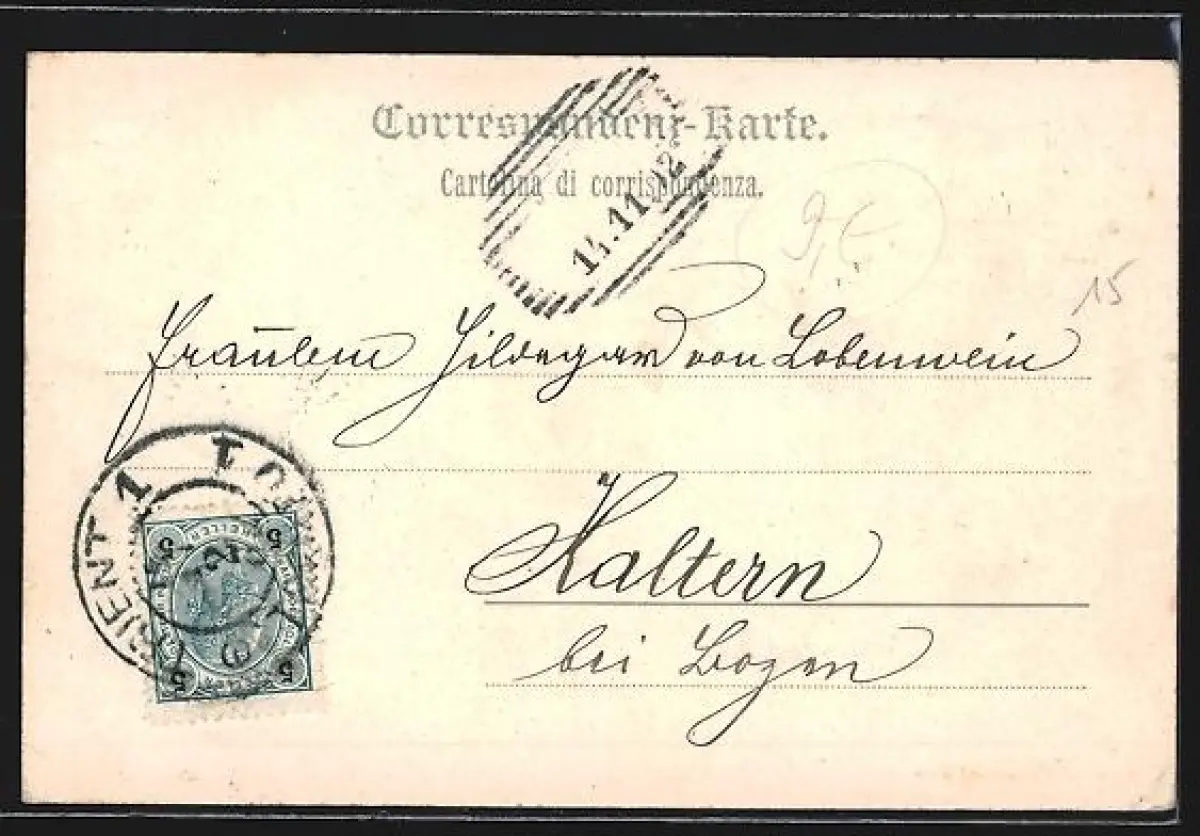 Correspondenz-Karte.
Cartolina di corrispondenza.
14.11.02
15
Fräulein Hildegard von Lobenwein
Kaltern
bei Bozen
TRIENT 1
5 5
5 5